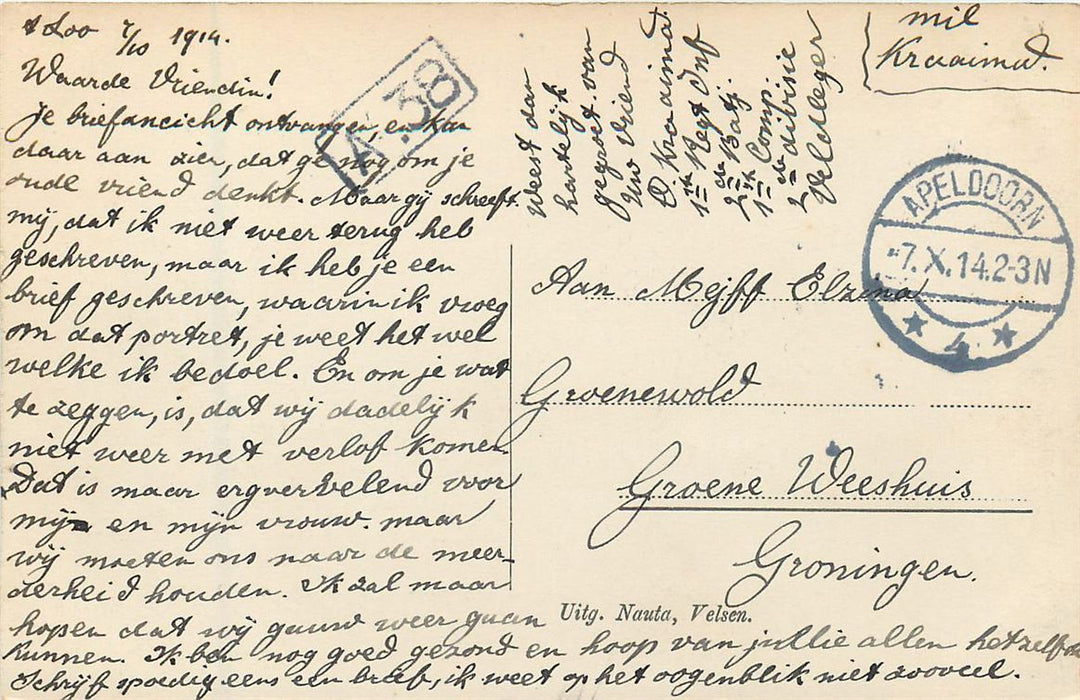 't Loo 7/10 1914.
Waarde Vriendin!
Je briefancicht ontvangen, en kan
daar aan zien, dat ge nog om je
oude vriend denkt. Maar gij schreeft
mij, dat ik niet weer terug heb
geschreven, maar ik heb je een
brief geschreven, waarin ik vroeg
om dat portret, je weet het wel
welke ik bedoel. En om je wat
te zeggen, is, dat wij dadelijk
niet weer met verlof komen.
Dat is maar ergvervelend voor
mij en mijn vrouw. maar
wij moeten ons naar de meer-
derheid houden. Ik zal maar
hopen dat wij gauw weer gaan
kunnen. Ik ben nog goed gezond en hoop van jullie allen hetzelfde
Schrijf spoedig eens een brief, ik weet op het oogenblik niet zooveel.
Weest dan
hartelijk
gegroet van
Uw Vriend
D Kraaima.
1ste Regt Inf
2de Batj.
1ste Comp.
2de divisie
Veldleger
A. 38
mil
Kraaima.
APELDOORN
-7.X.14.2-3N
4
Aan Mejff Elzina
Groenewold
Groene Weeshuis
Groningen.
Uitg. Nauta, Velsen.